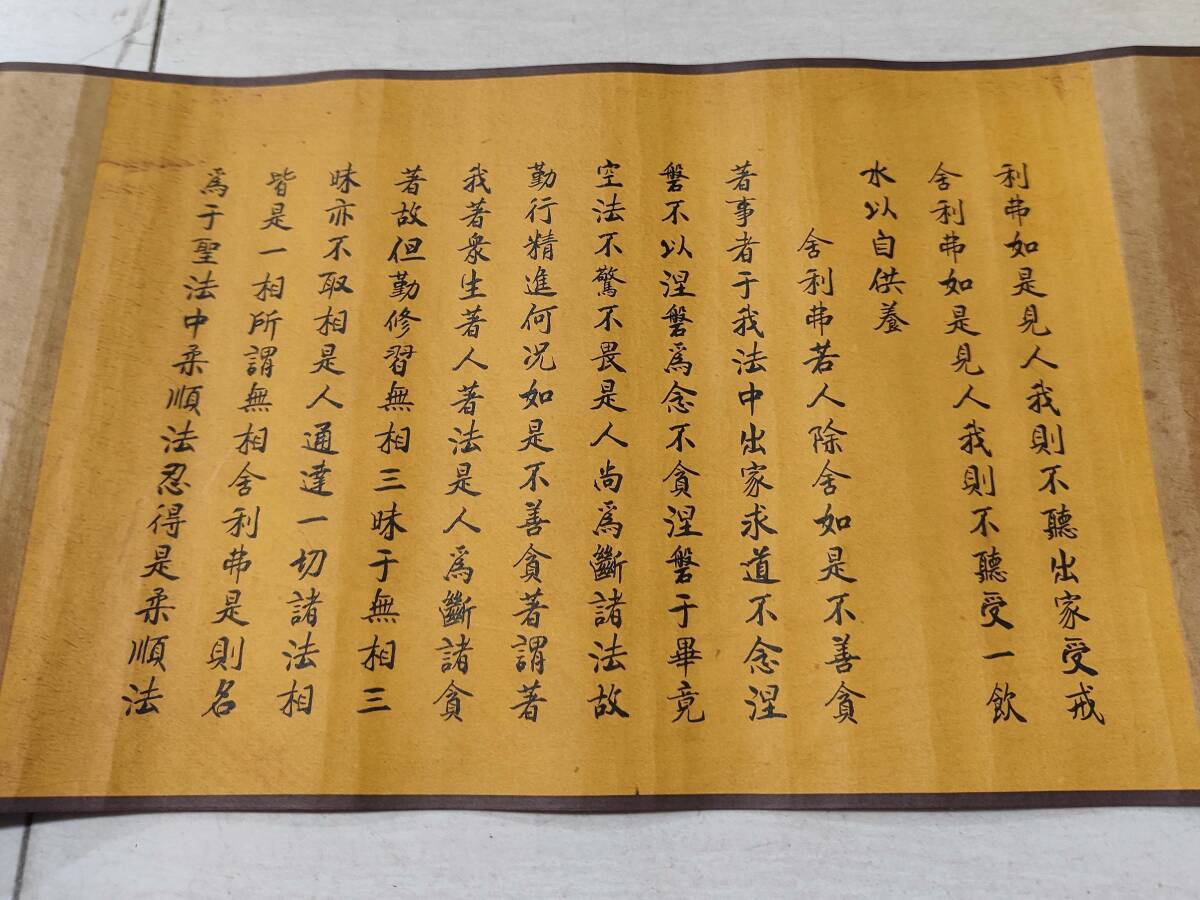 利弗如是見人我則不聽出家受戒
舍利弗如是見人我則不聽受一飲
水以自供養
舍利弗若人除舍如是不善貪
著事者于我法中出家求道不念涅
槃不以涅槃爲念不貪涅槃于畢竟
空法不驚不畏是人尚爲斷諸法故
勤行精進何况如是不善貪著謂著
我著衆生著人著法是人爲斷諸貪
著故但勤修習無相三昧于無相三
昧亦不取相是人通達一切諸法相
皆是一相所謂無相舍利弗是則名
爲于聖法中柔順法忍得是柔順法